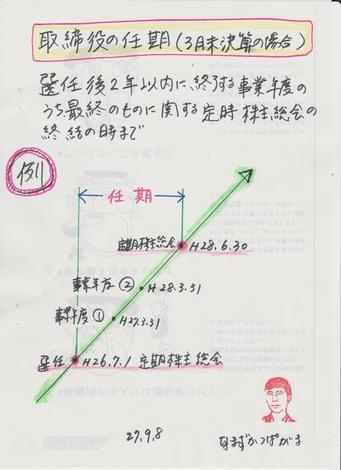 取締役の任期(3月末決算の場合)
選任後2年以内に終了する事業年度の
うち最終のものに関する定時株主総会の
終結の時まで
例
任期
定期株主総会 H28.6.30
事業年度② H28.3.31
事業年度① H27.3.31
選任 H26.7.1 定期株主総会
27.9.8
なまずかっぱがま